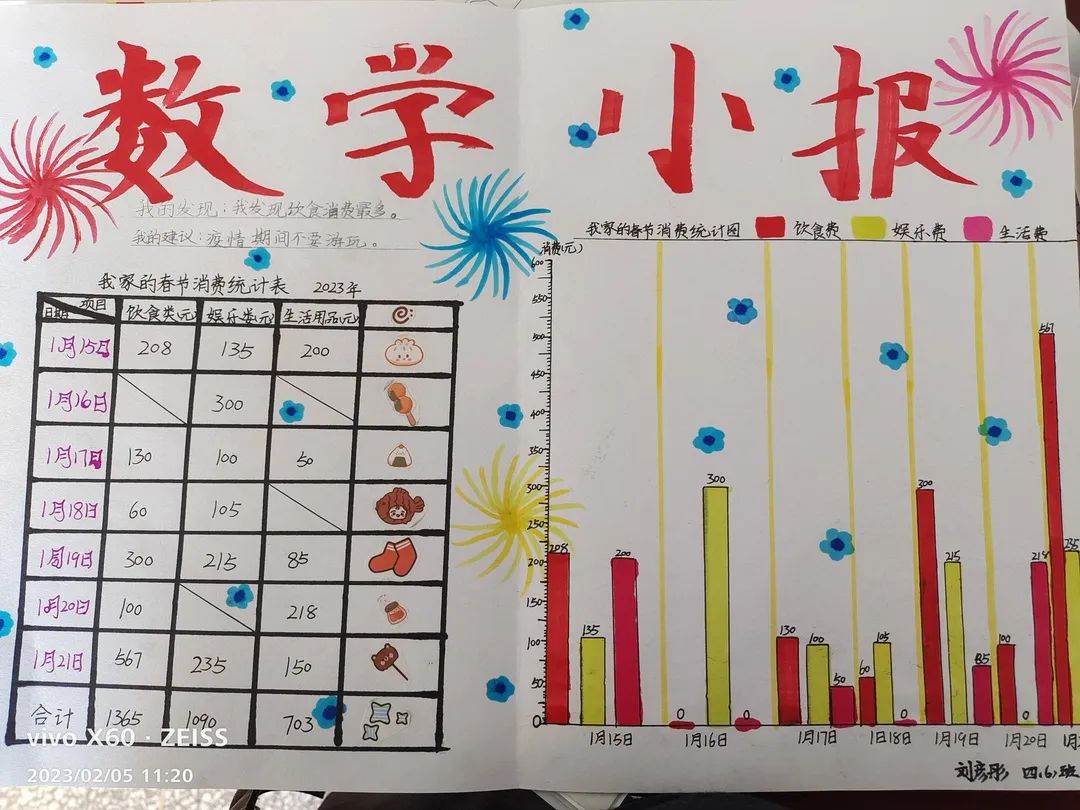 数学小报
我的发现：我发现饮食消费最多。
我的建议：疫情期间不要游玩。
我家的春节消费统计表 2023年
日期 项目 饮食类(元) 娱乐类(元) 生活用品(元)
1月15日 208 135 200
1月16日 300
1月17日 130 100 50
1月18日 60 105
1月19日 300 215 85
1月20日 100 218
1月21日 567 235 150
合计 1365 1090 703
vivo X60 · ZEISS
2023/02/05 11:20
我家的春节消费统计图 饮食费 娱乐费 生活费
消费(元)
600
550
500
450
400
350
300
250
200
150
100
50
0
208 135 200
0 300 0
130 100 50
60 105 0
300 215 85
100 0 218
567 235
1月15日 1月16日 1月17日 1月18日 1月19日 1月20日
刘彦彤 四(6)班